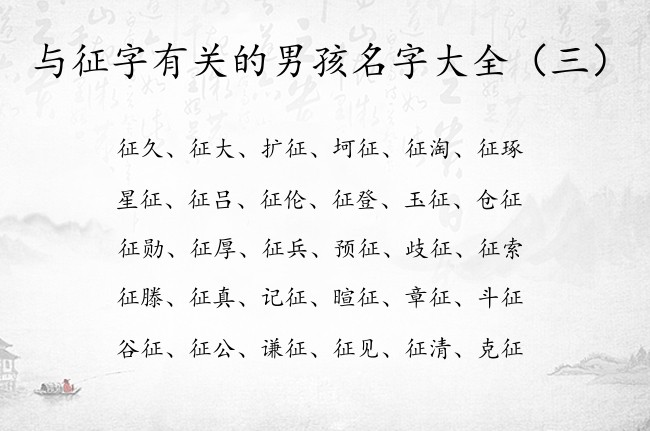 与征字有关的男孩名字大全（三）
征久、征大、扩征、坷征、征淘、征琢
星征、征吕、征伦、征登、玉征、仓征
征勋、征厚、征兵、预征、歧征、征索
征滕、征真、记征、暄征、章征、斗征
谷征、征公、谦征、征见、征清、克征